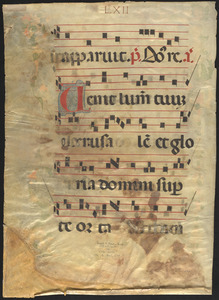 LXII
apparuit. p. Do re. a.
Uenit lum tuu
ierusa lē et glo
ria domini sup
te or ta